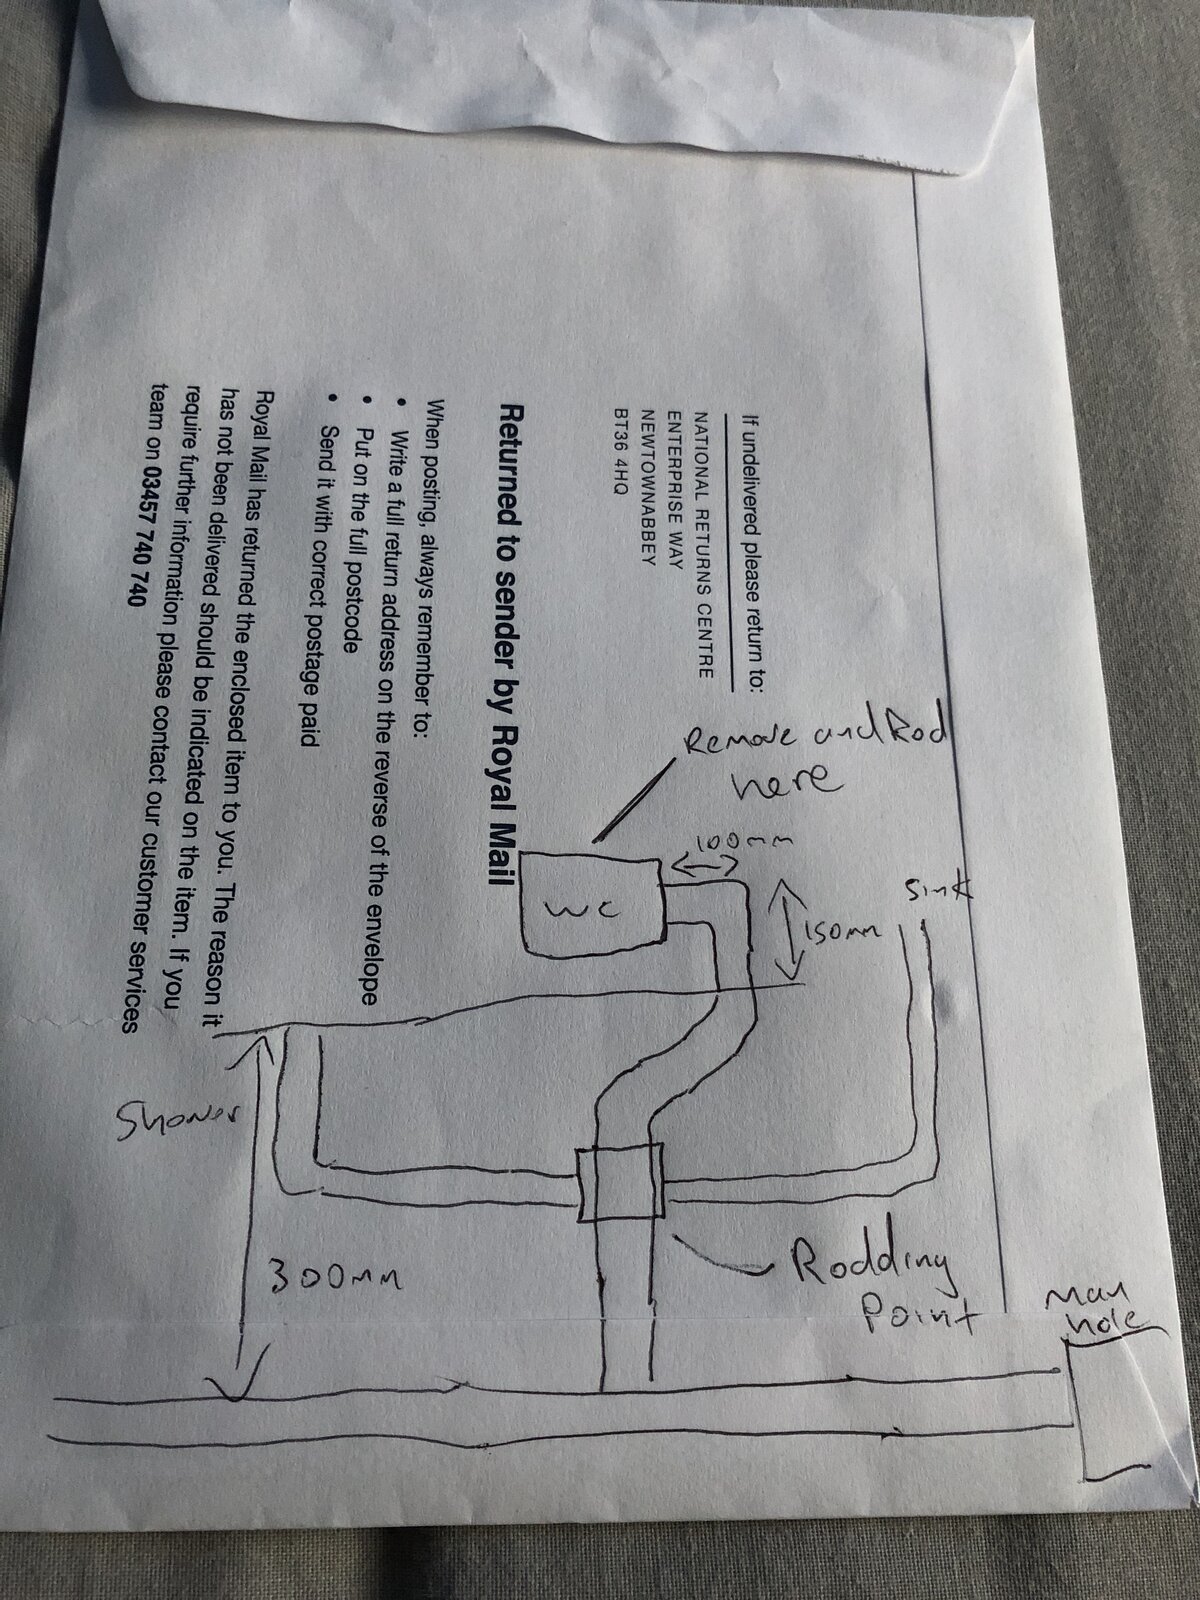 If undelivered please return to:
NATIONAL RETURNS CENTRE
ENTERPRISE WAY
NEWTOWNABBEY
BT36 4HQ
Returned to sender by Royal Mail
When posting, always remember to:
• Write a full return address on the reverse of the envelope
• Put on the full postcode
• Send it with correct postage paid
Royal Mail has returned the enclosed item to you. The reason it
has not been delivered should be indicated on the item. If you
require further information please contact our customer services
team on 03457 740 740
Remove and Rod
here
100mm
WC
150mm
Sink
Shower
300mm
Rodding
Point
Man
hole